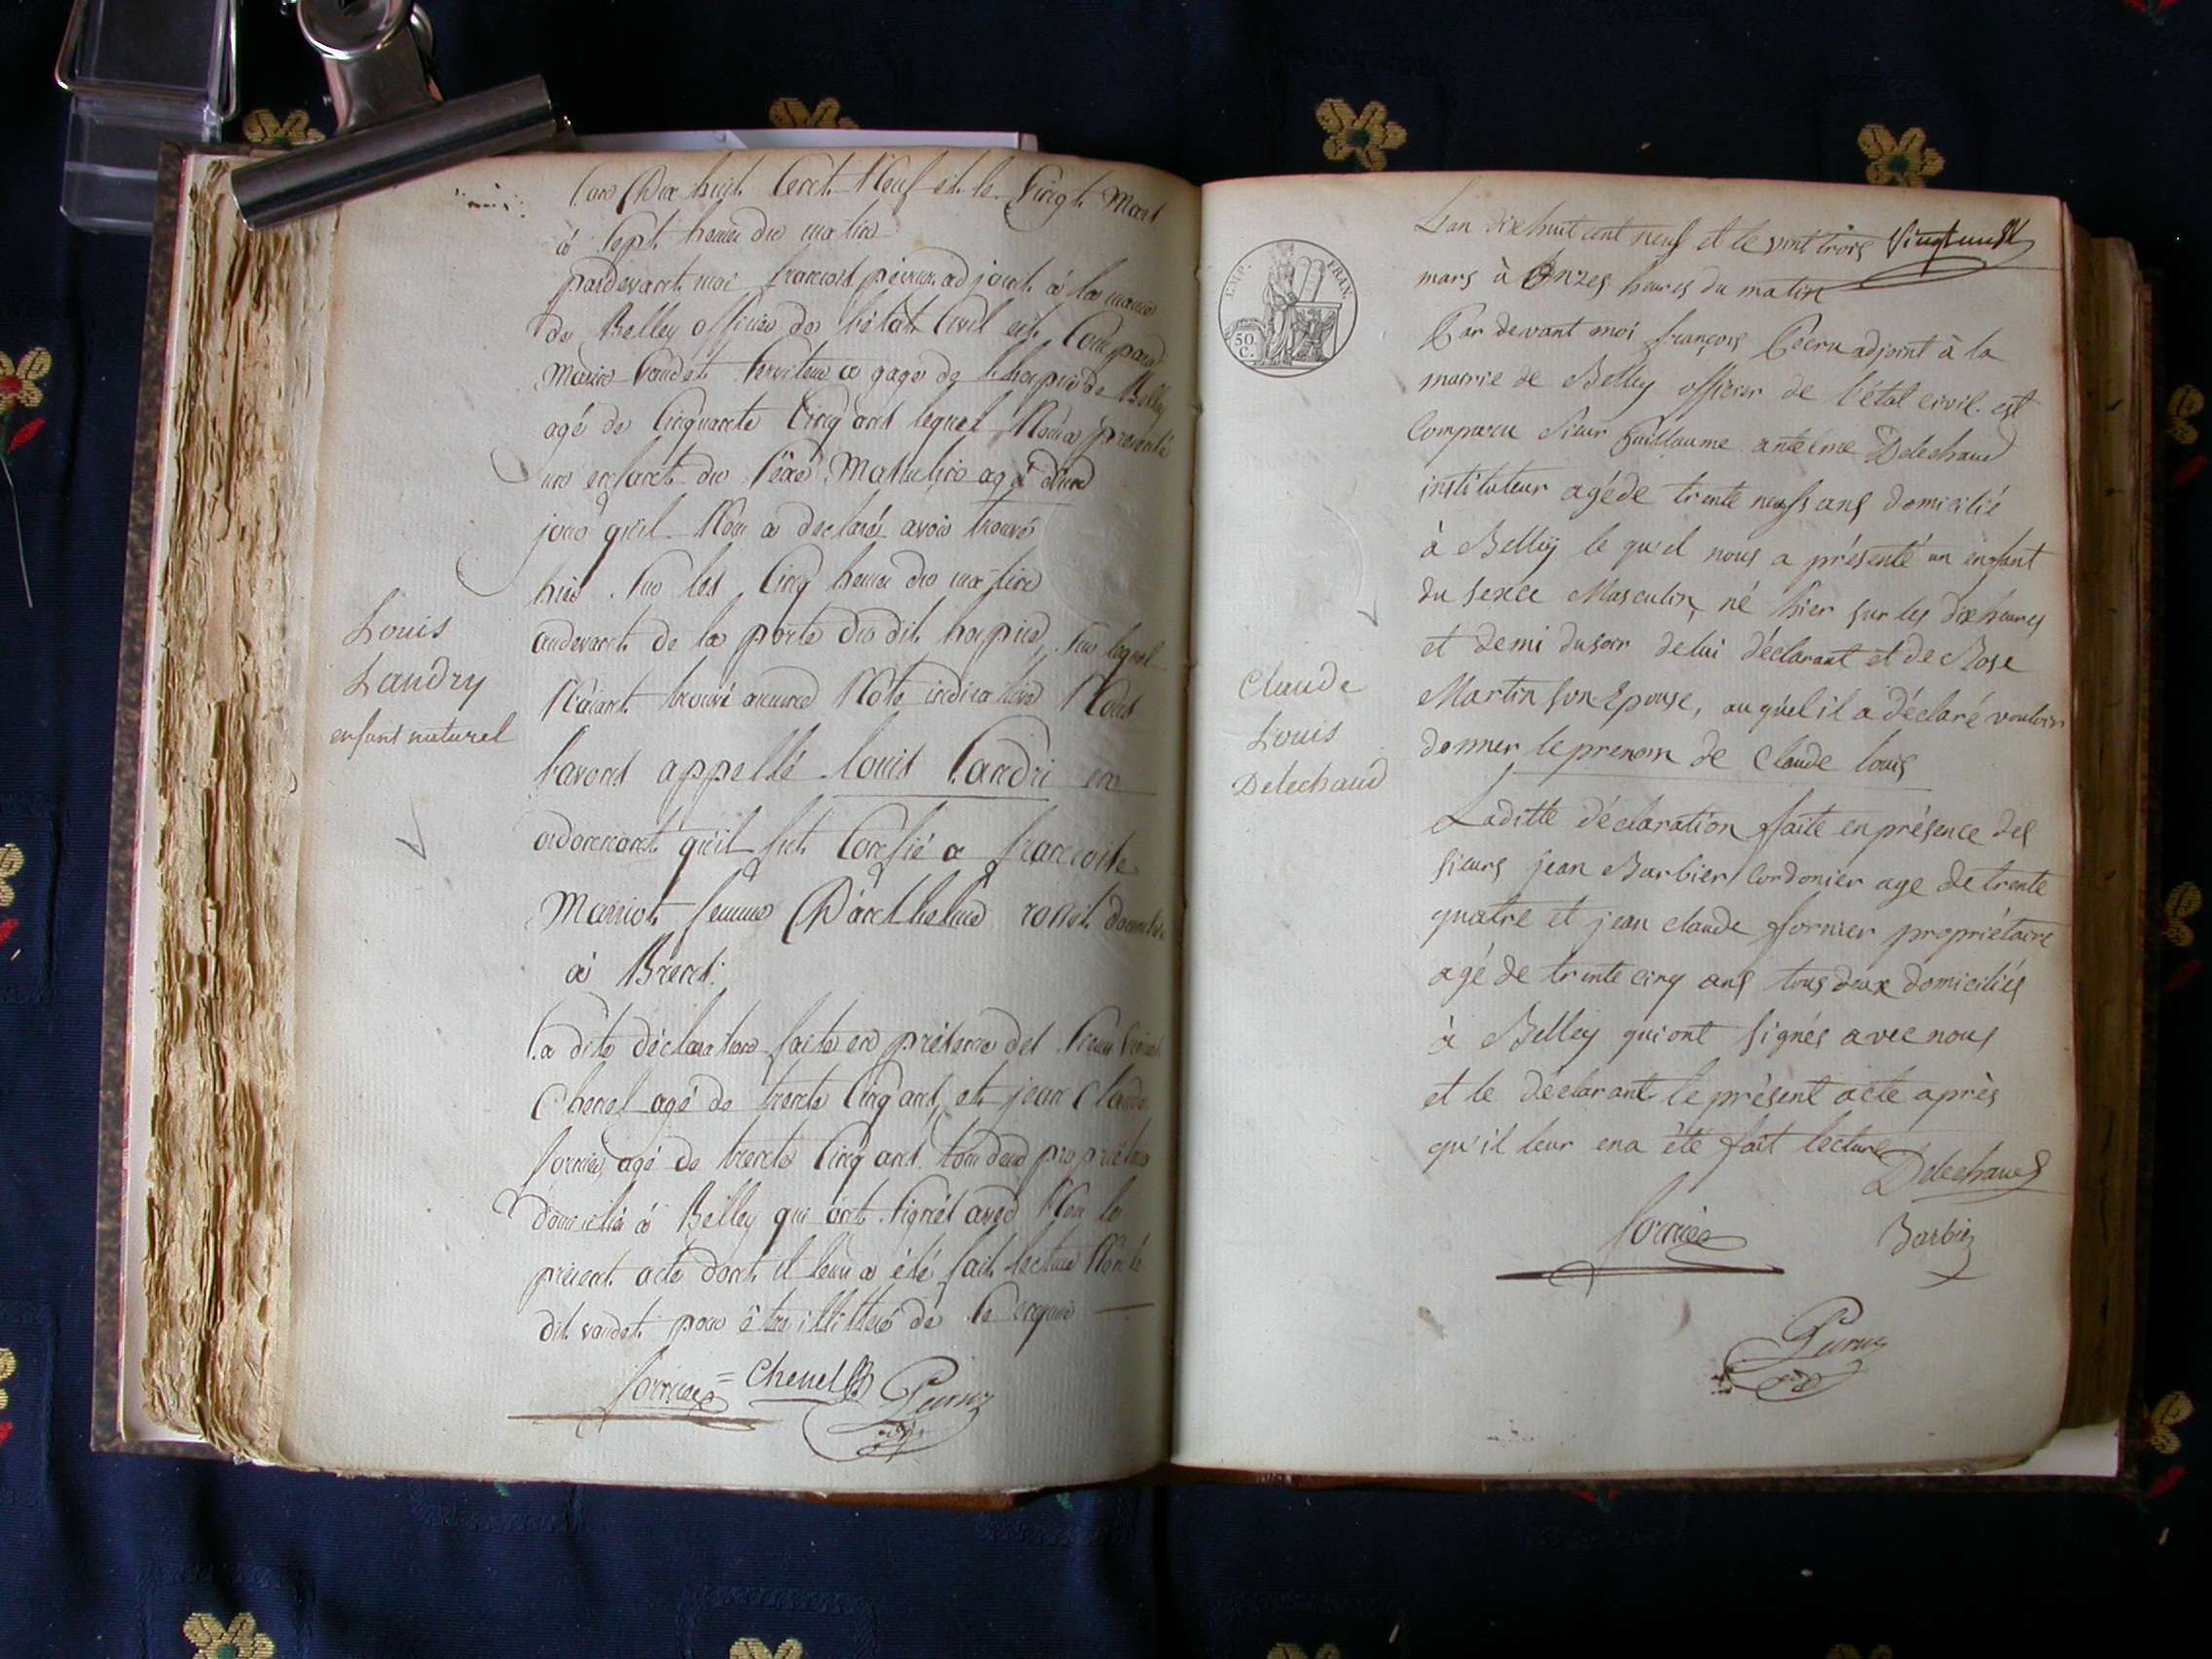 L'an Dix huit Cent Neuf et le Vingt Mars
à Sept heures du matin
pardevant moi françois pécrux adjoint à la mairie
de Belley officier de l'état Civil est Comparu
Marin Vaudet Serviteur a gage de l'hospice de Belley
agé de Cinquante Cinq ans lequel Nous a présenté
un enfant du Sèxe Masculin agé d'un
jour qu'il Nous a déclaré avoir trouvé
hier Sur les Cinq heures du matin
audevant de la porte du dit hospice, Sur lequel
N'aiant trouvé aucune Note indicative Nous
l'avons appellé Louis Landri en
ordonnant qu'il fut Confié a françoise
Marriot femme D'anthelme rosset domiciliée
à Brens.
La dite déclaration faite en présence des Sieurs
Chenel agé de trente Cinq ans, et jean Claude
fornier agé de trente Cinq ans tous deux propriétaires
domiciliés à Belley qui ont Signés avec Nous le
présent acte dont il leur a été fait lecture Non le
dit vaudet pour être illitteré de ce enquis
Louis
Landry
enfant naturel
fornier = Chenel Pecrux
EMP. FRAN.
50 C.
L'an dix huit cent neuf et le vint trois Vingt un
mars à Onzes heures du matin
Par devant moi françois Pecru adjoint à la
mairie de Belley officier de l'état civil est
Comparu Sieur Guillaume antelme Delechaud
instituteur agé de trente neufs ans domicilié
à Belleÿ le qu'el nous a présenté un enfant
du Sexce Masculin, né hier sur les dix heures
et demi du soir de lui déclarant et de Rose
Martin son Epouse, au qu'el il a déclaré vouloir
donner le prenom de Claude louis
Claude
Louis
Delechaud
Laditte déclaration faite en présence des
sieurs jean Barbier Cordonier age de trente
quatre et jean claude fornier propriétaire
agé de trente cinq ans tous deux domiciliés
à Belley qui ont signés avec nous
et le déclarant le présent acte après
qu'il leur en a été fait lecture
Delechaud
fornier Barbier
Pecrux